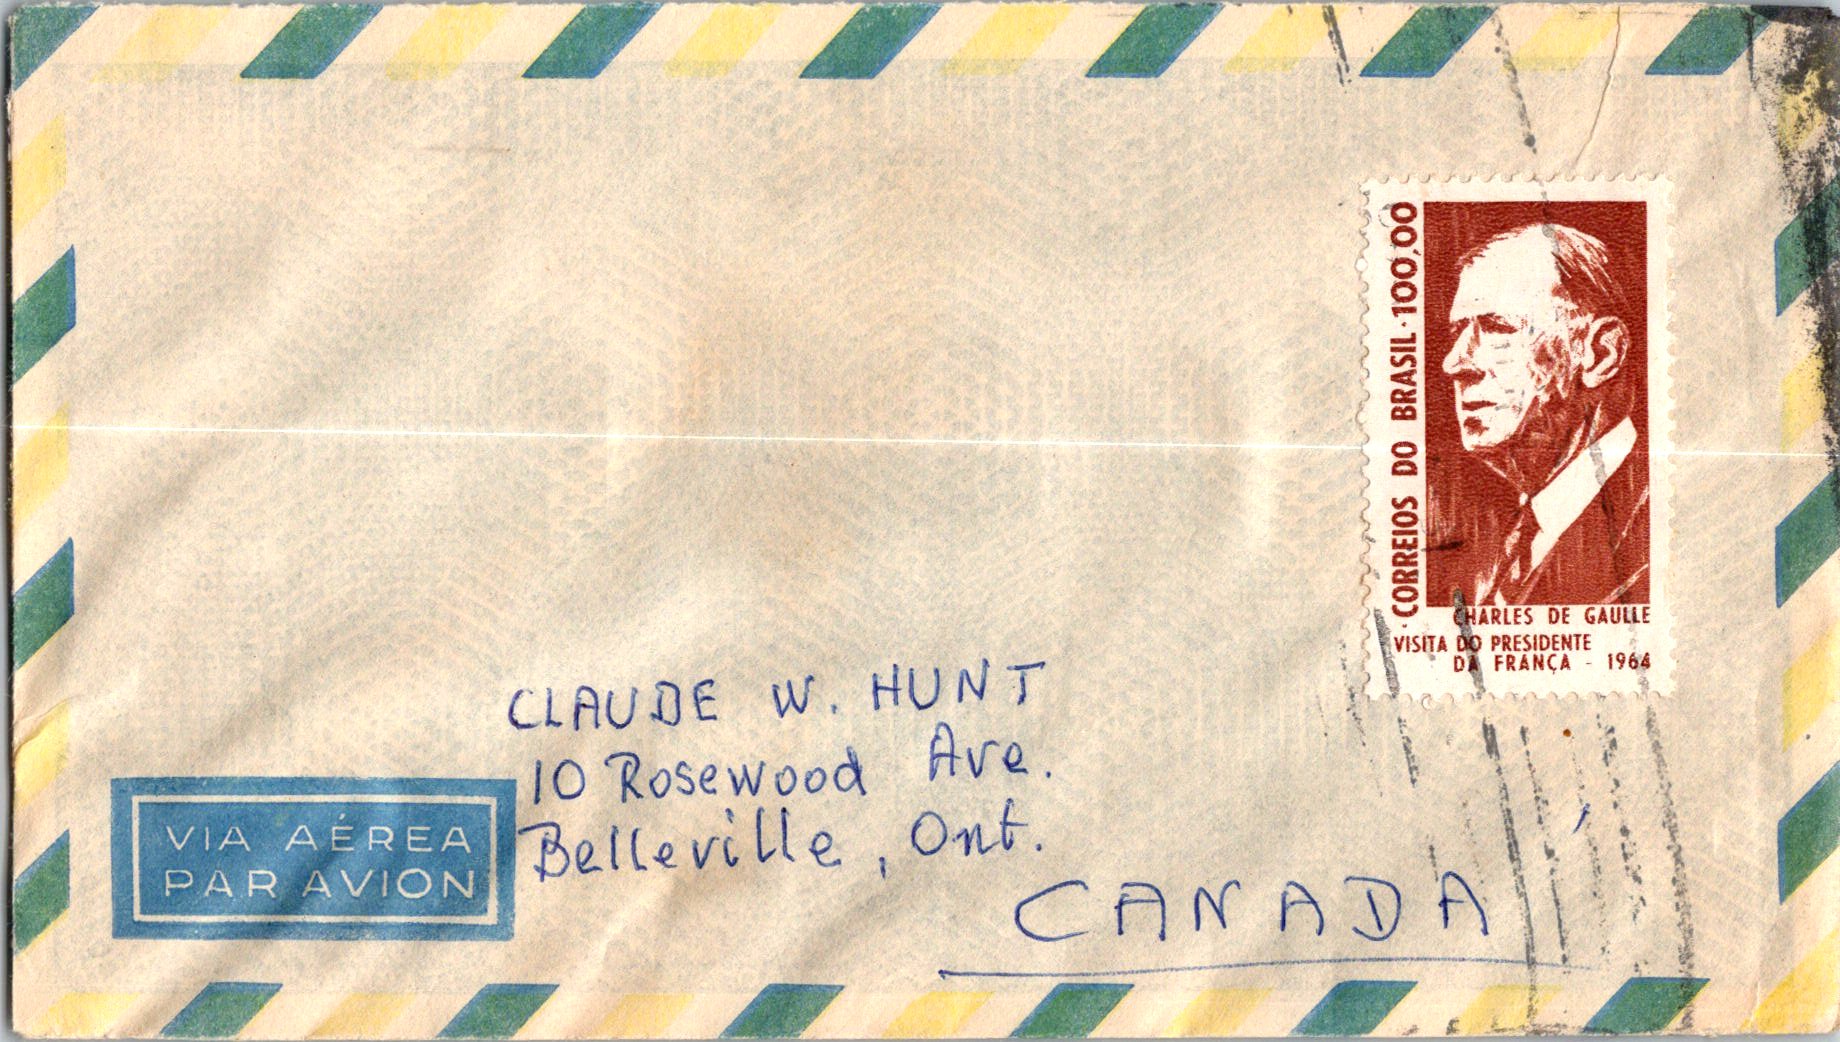 CORREIOS DO BRASIL · 100,00
CHARLES DE GAULLE
VISITA DO PRESIDENTE
DA FRANÇA - 1964
CLAUDE W. HUNT
10 Rosewood Ave.
Belleville, Ont.
CANADA
VIA AÉREA
PAR AVION